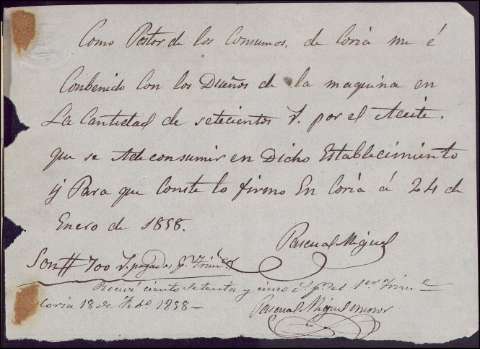 Como Postor de los Consumos, de Coria me é
Conbenido Con los Dueños de la maquina en
La Cantidad de setecientos r. por el Aceite.
que se Ade consumir en Dicho Establecimiento
y Para que Conste lo firmo En Coria á 24 de
Enero de 1858.
Pascual Miguel
Son # 700 r. pagados pr.
Recivi ciento setenta y cinco r. pr. el 1er
Coria 18 de de 1858 -
Pascual Miguel